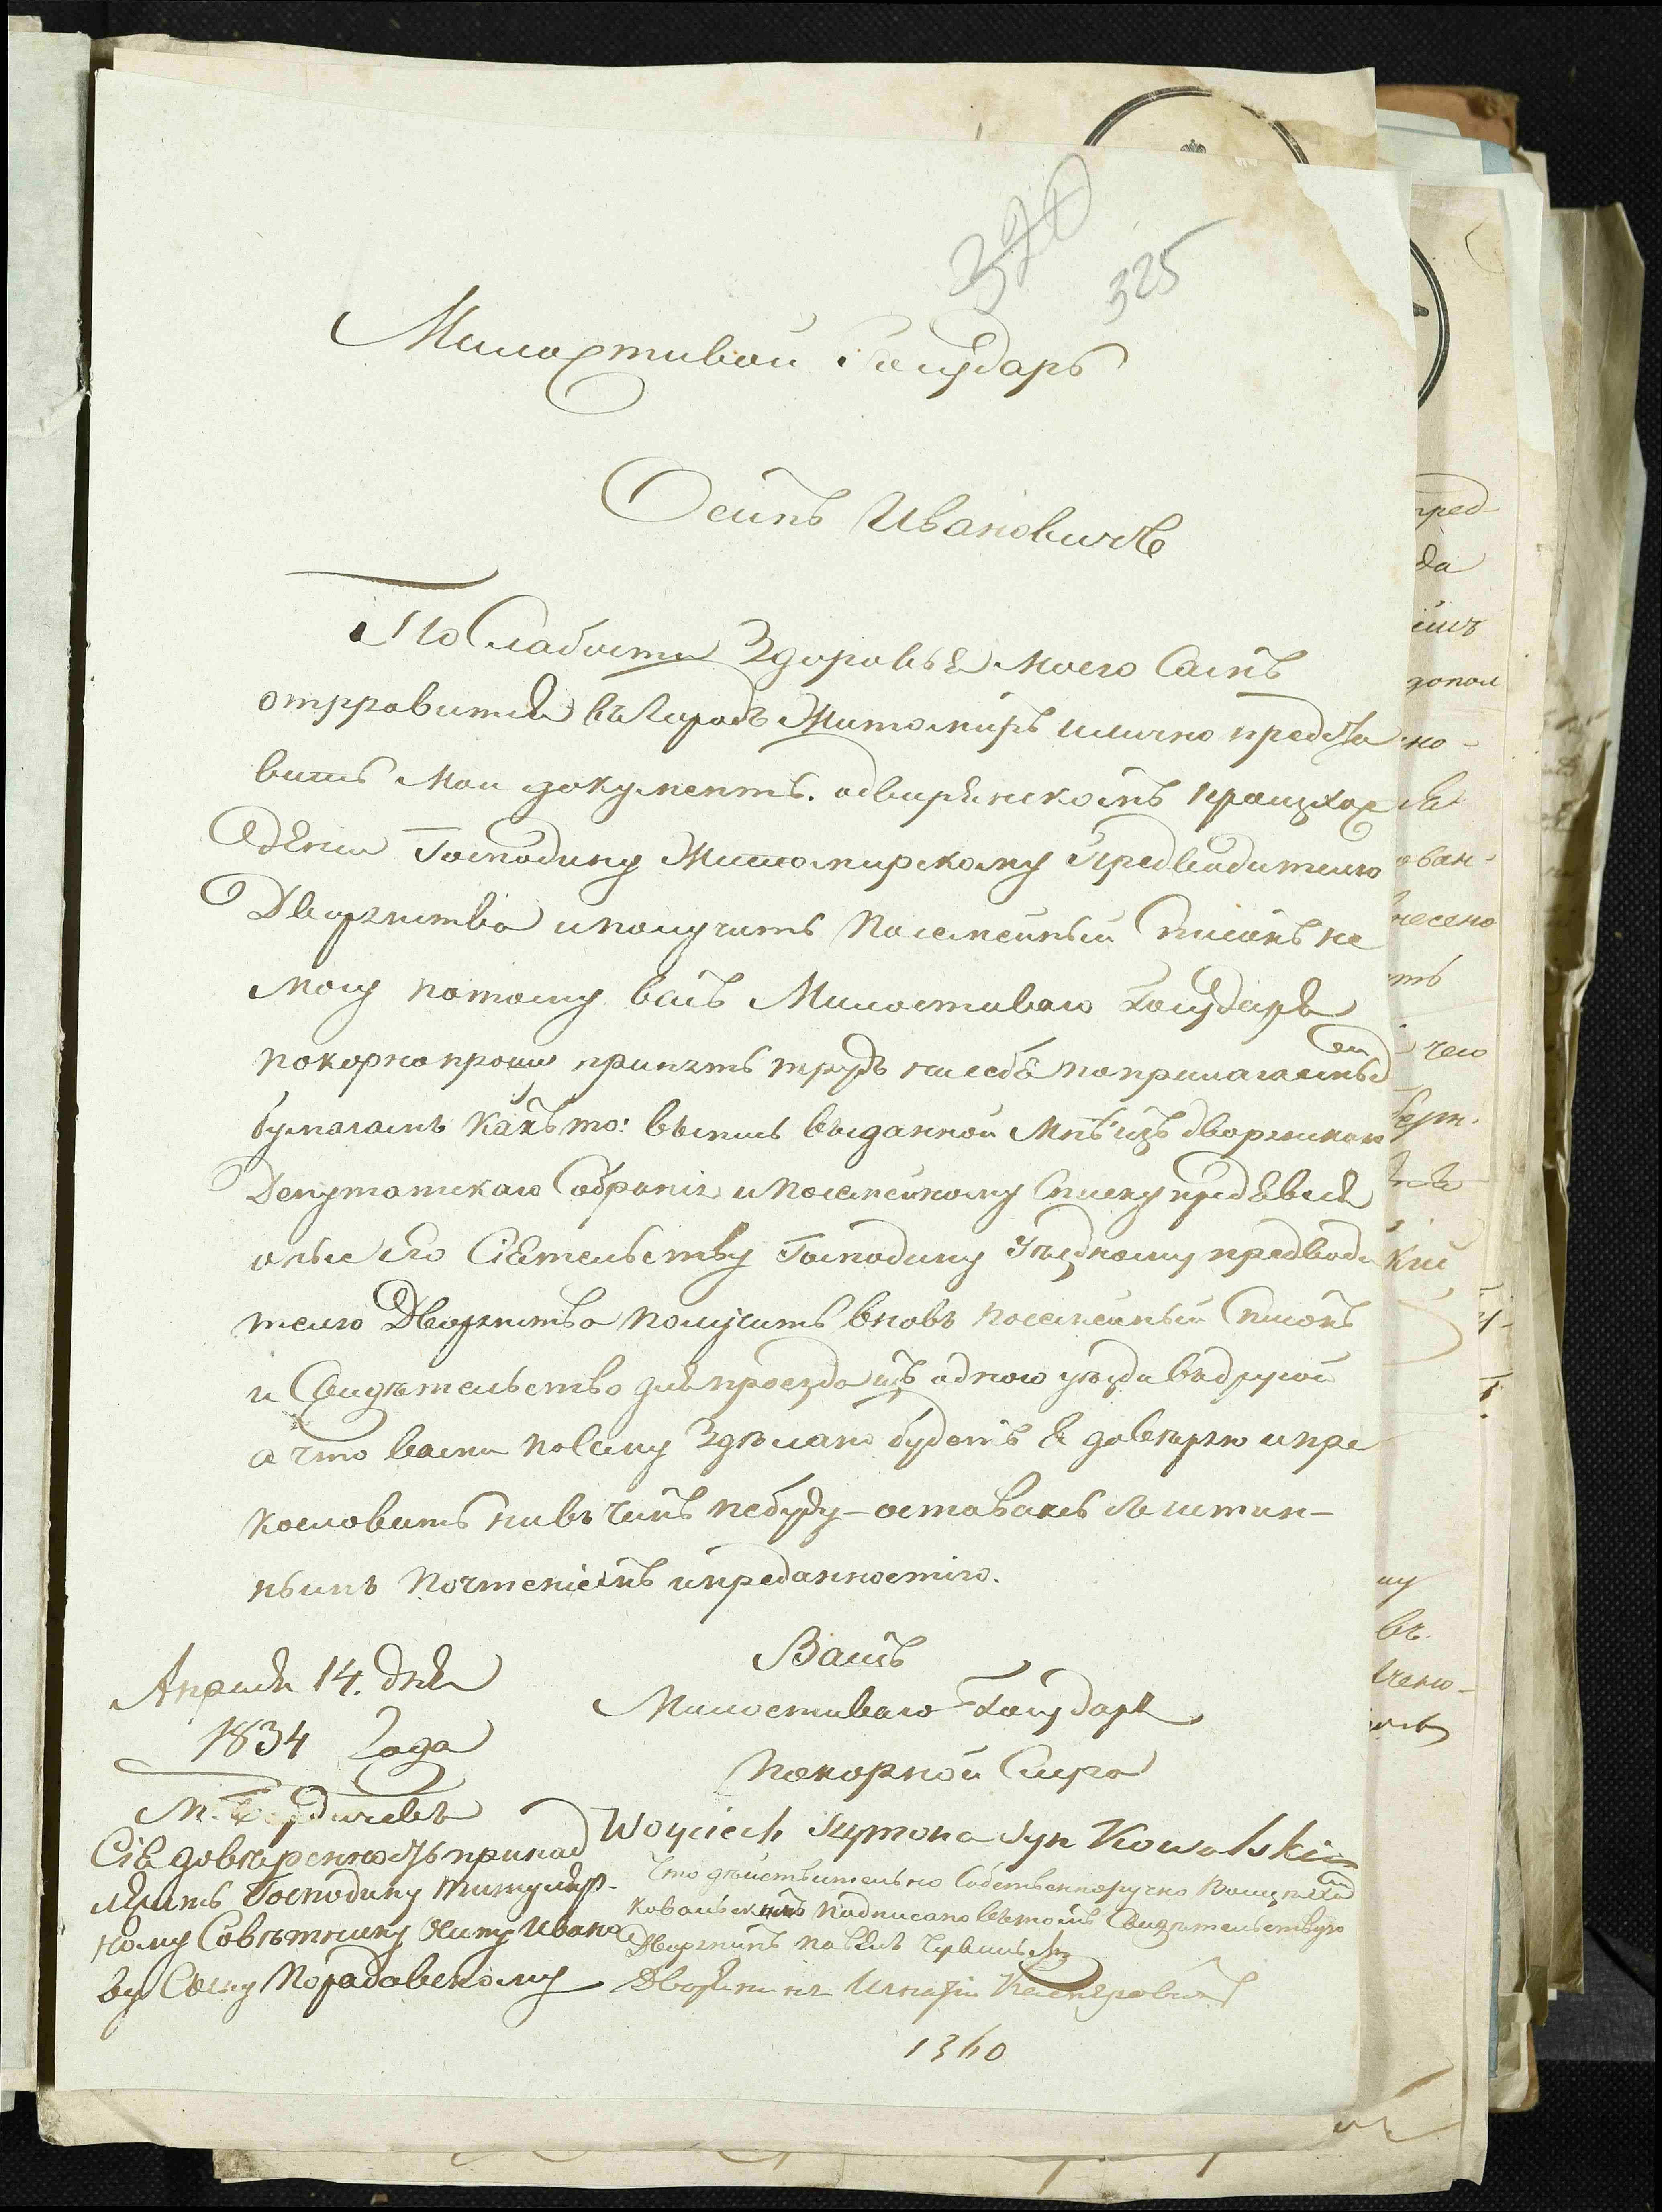 320
325
Милостивой Государь
Осипъ Ивановичъ
По Слабости Здоровья Моего Самъ
отправится въ Городъ Житомиръ илично предста
вить Мои документъ. одворянскомъ происхож
дении Господину Житомирскому Предводителю
Дворянства иполучить Посемейный Списокъ не
могу потому васъ Милостиваго Государя
покорно прошу принять трудъ насебя поприлагаемымъ
бумагамъ какъ то: выписъ выданной Мнѣ изъ дворянскаго
Депутатскаго Собранія и Посемейному Списку предъявя
оные Его Сіятельству Господину Уѣздному предводи
телю Дворянства получить вновь посемейный Списокъ
и Свидѣтельство для проезда изъ одного уѣзда въ другой
а что вами посему Здѣлано будетъ я довѣряю и пре
кословить нивъ чемъ небуду – оставаясь съ истин–
нымъ Почтеніемъ ипреданностію.
Вашъ
Милостиваго Государя
Покорной Слуга
Апреля 14. дня
1834 Года
М. Бердичевъ
Woyciech Szymona syn Kowalski
Сія довѣренность принад
лежитъ Господину титуляр–
ному Совѣтнику Осипу Ивано
ву Сыну Порадовскому
Что дѣйствительно Собственноручно Войцехомъ
Ковальскимъ подписано вътомъ Свидѣтельствую
Дворянинъ Павелъ
Дворянинъ Игнатій Касперовичъ
1360
пред–
да
допол
но–
ован–
несено
ть
чего
кій
му
въ